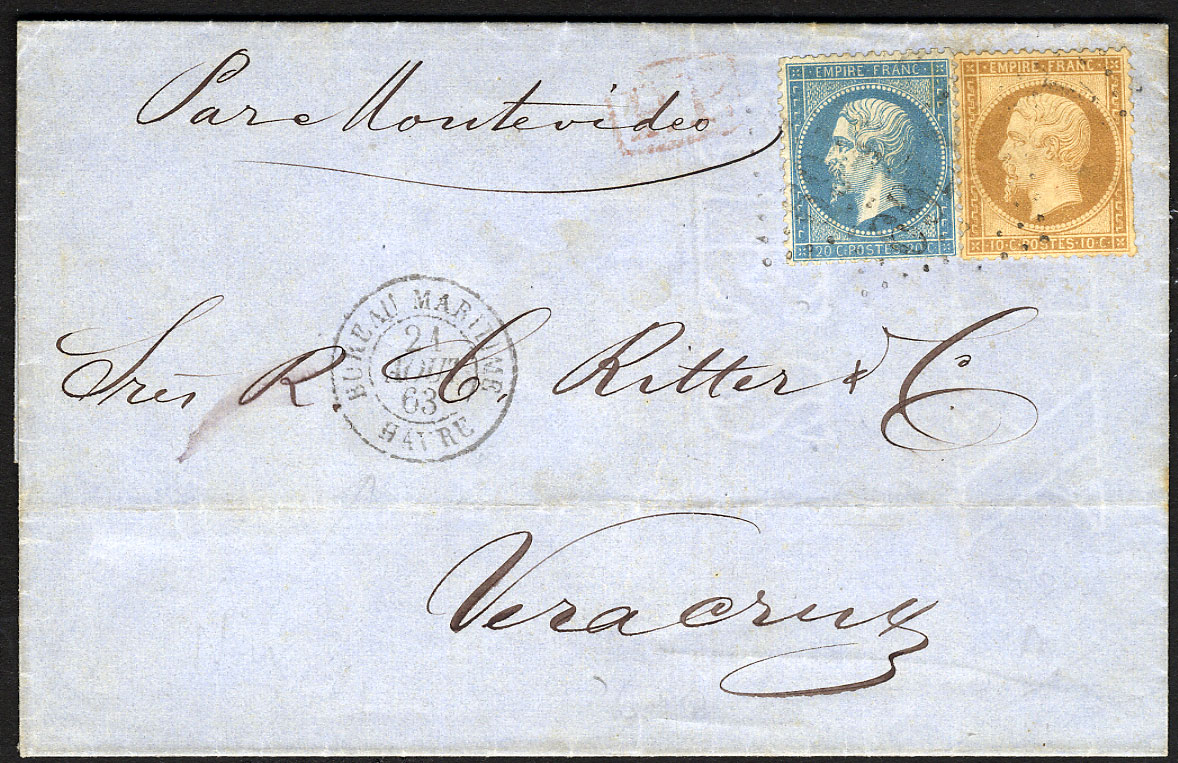 Par Montevideo
EMPIRE · FRANC ·
20 C · POSTES · 20 C
EMPIRE · FRANC ·
10 · C · POSTES · 10 · C
BUREAU MARITIME
21
AOUT
63
HAVRE
Srès R. C. Ritter & Cº
Veracruz